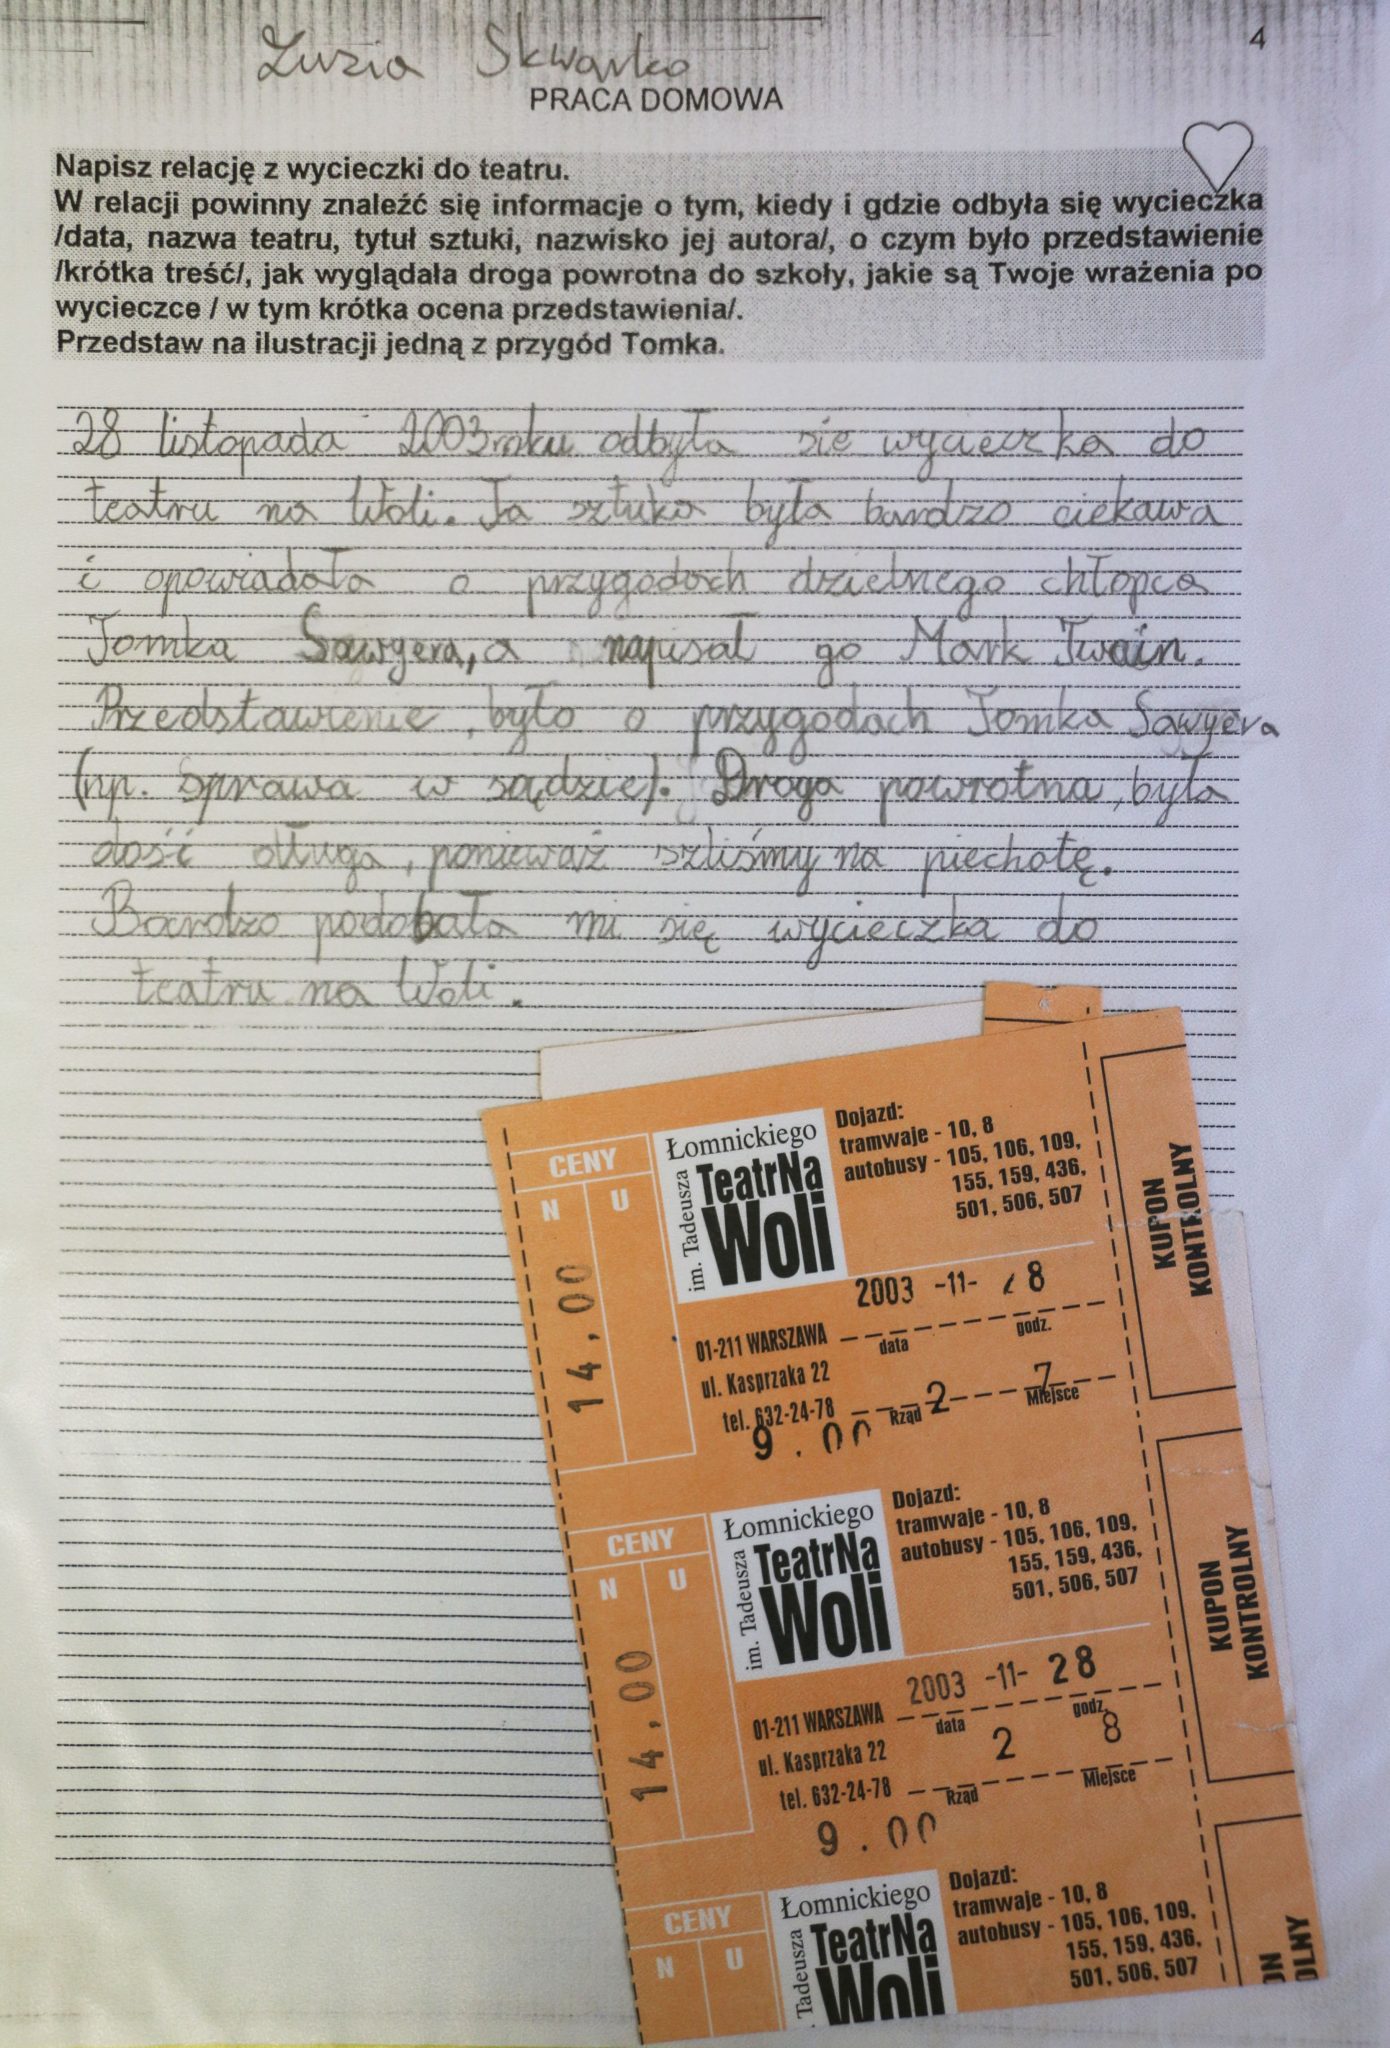 Zuzia Skwarko
4
PRACA DOMOWA
Napisz relację z wycieczki do teatru.
W relacji powinny znaleźć się informacje o tym, kiedy i gdzie odbyła się wycieczka
/data, nazwa teatru, tytuł sztuki, nazwisko jej autora/, o czym było przedstawienie
/krótka treść/, jak wyglądała droga powrotna do szkoły, jakie są Twoje wrażenia po
wycieczce / w tym krótka ocena przedstawienia/.
Przedstaw na ilustracji jedną z przygód Tomka.
28 listopada 2003 roku odbyła sie wycieczka do
teatru na Woli. Ta sztuka była bardzo ciekawa
i opowiadała o przygodach dzielnego chłopca
Tomka Sawyera, a napisał go Mark Twain.
Przedstawienie, było o przygodach Tomka Sawyera
(np. Sprawa w sądzie). Droga powrotna, była
dość długa, ponieważ szliśmy na piechotę.
Bardzo podobała mi się wycieczka do
teatru na Woli.
CENY
N U
14,00
im. Tadeusza
Łomnickiego
TeatrNa
Woli
Dojazd:
tramwaje - 10, 8
autobusy - 105, 106, 109,
155, 159, 436,
501, 506, 507
2003 -11- 28
01-211 WARSZAWA
data godz.
ul. Kasprzaka 22
2 7
tel. 632-24-78
Rząd Miejsce
9.00
KUPON
KONTROLNY
CENY
N U
14,00
im. Tadeusza
Łomnickiego
TeatrNa
Woli
Dojazd:
tramwaje - 10, 8
autobusy - 105, 106, 109,
155, 159, 436,
501, 506, 507
2003 -11- 28
01-211 WARSZAWA
data godz.
ul. Kasprzaka 22
2 8
tel. 632-24-78
Rząd Miejsce
9.00
KUPON
KONTROLNY
CENY
N U
. Tadeusza
Łomnickiego
TeatrNa
Woli
Dojazd:
tramwaje - 10, 8
autobusy - 105, 106, 109,
155, 159, 436,
501, 506, 507
ON
OLNY